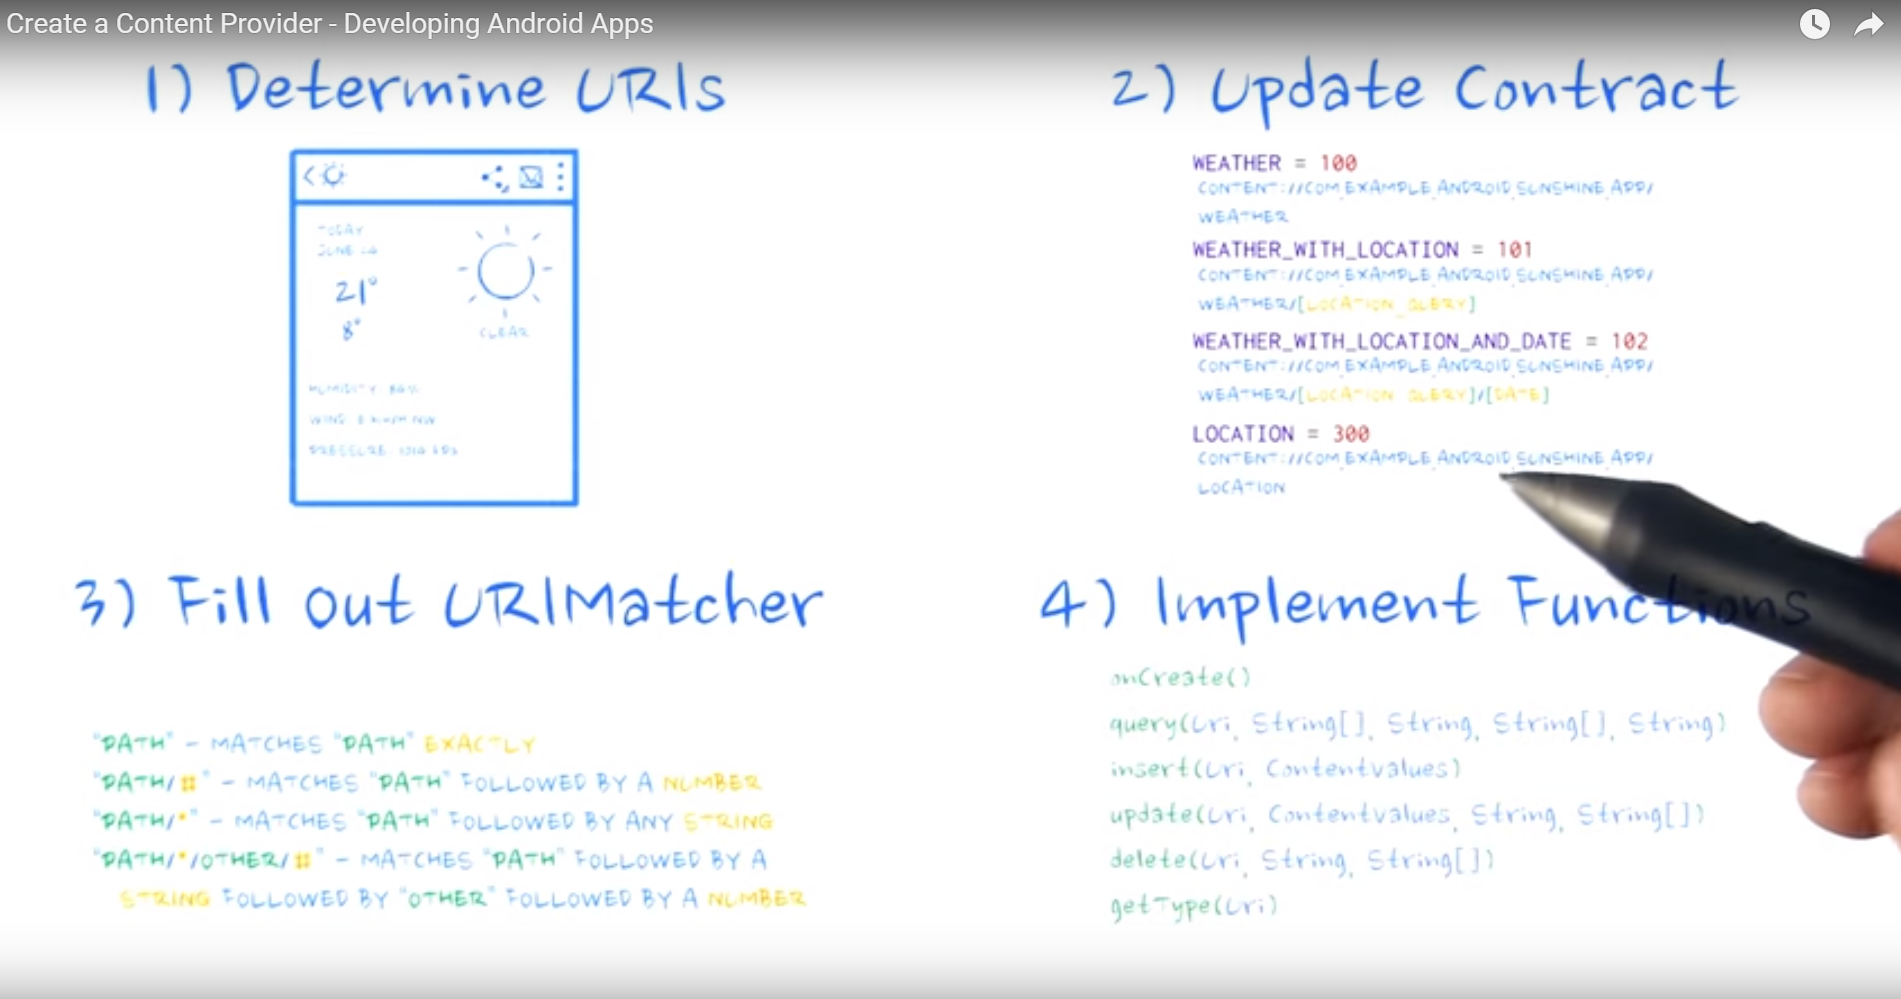 Create a Content Provider - Developing Android Apps
1) Determine URIs
TODAY
21°
8°
CLEAR
HUMIDITY
WIND
PRESSURE
2) Update Contract
WEATHER = 100
CONTENT://COM.EXAMPLE.ANDROID.SUNSHINE.APP/
WEATHER
WEATHER_WITH_LOCATION = 101
CONTENT://COM.EXAMPLE.ANDROID.SUNSHINE.APP/
WEATHER/[LOCATION_QUERY]
WEATHER_WITH_LOCATION_AND_DATE = 102
CONTENT://COM.EXAMPLE.ANDROID.SUNSHINE.APP/
WEATHER/[LOCATION_QUERY]/[DATE]
LOCATION = 300
CONTENT://COM.EXAMPLE.ANDROID.SUNSHINE.APP/
LOCATION
3) Fill out URIMatcher
"PATH" - MATCHES "PATH" EXACTLY
"PATH/#" - MATCHES "PATH" FOLLOWED BY A NUMBER
"PATH/*" - MATCHES "PATH" FOLLOWED BY ANY STRING
"PATH/*/OTHER/#" - MATCHES "PATH" FOLLOWED BY A
STRING FOLLOWED BY "OTHER" FOLLOWED BY A NUMBER
4) Implement Functions
onCreate()
query(Uri, String[], String, String[], String)
insert(Uri, Contentvalues)
update(Uri, Contentvalues, String, String[])
delete(Uri, String, String[])
getType(Uri)